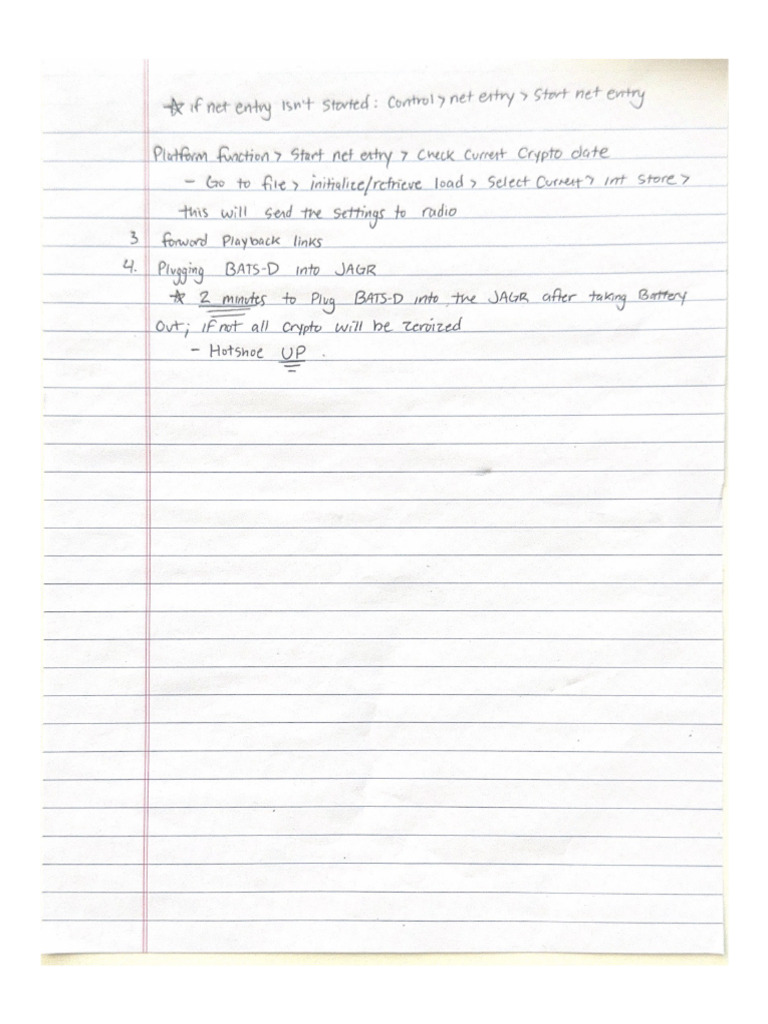 ☆ if net entry isn't started: Control > net entry > Start net entry
Platform function > Start net entry > Check Current Crypto date
- Go to file > initialize/retrieve load > Select Current > Int Store >
this will send the settings to radio
3 forward Playback links
4. Plugging BATS-D into JAGR
☆ 2 minutes to Plug BATS-D into the JAGR after taking Battery
Out; if not all Crypto will be zeroized
- Hotshoe UP.